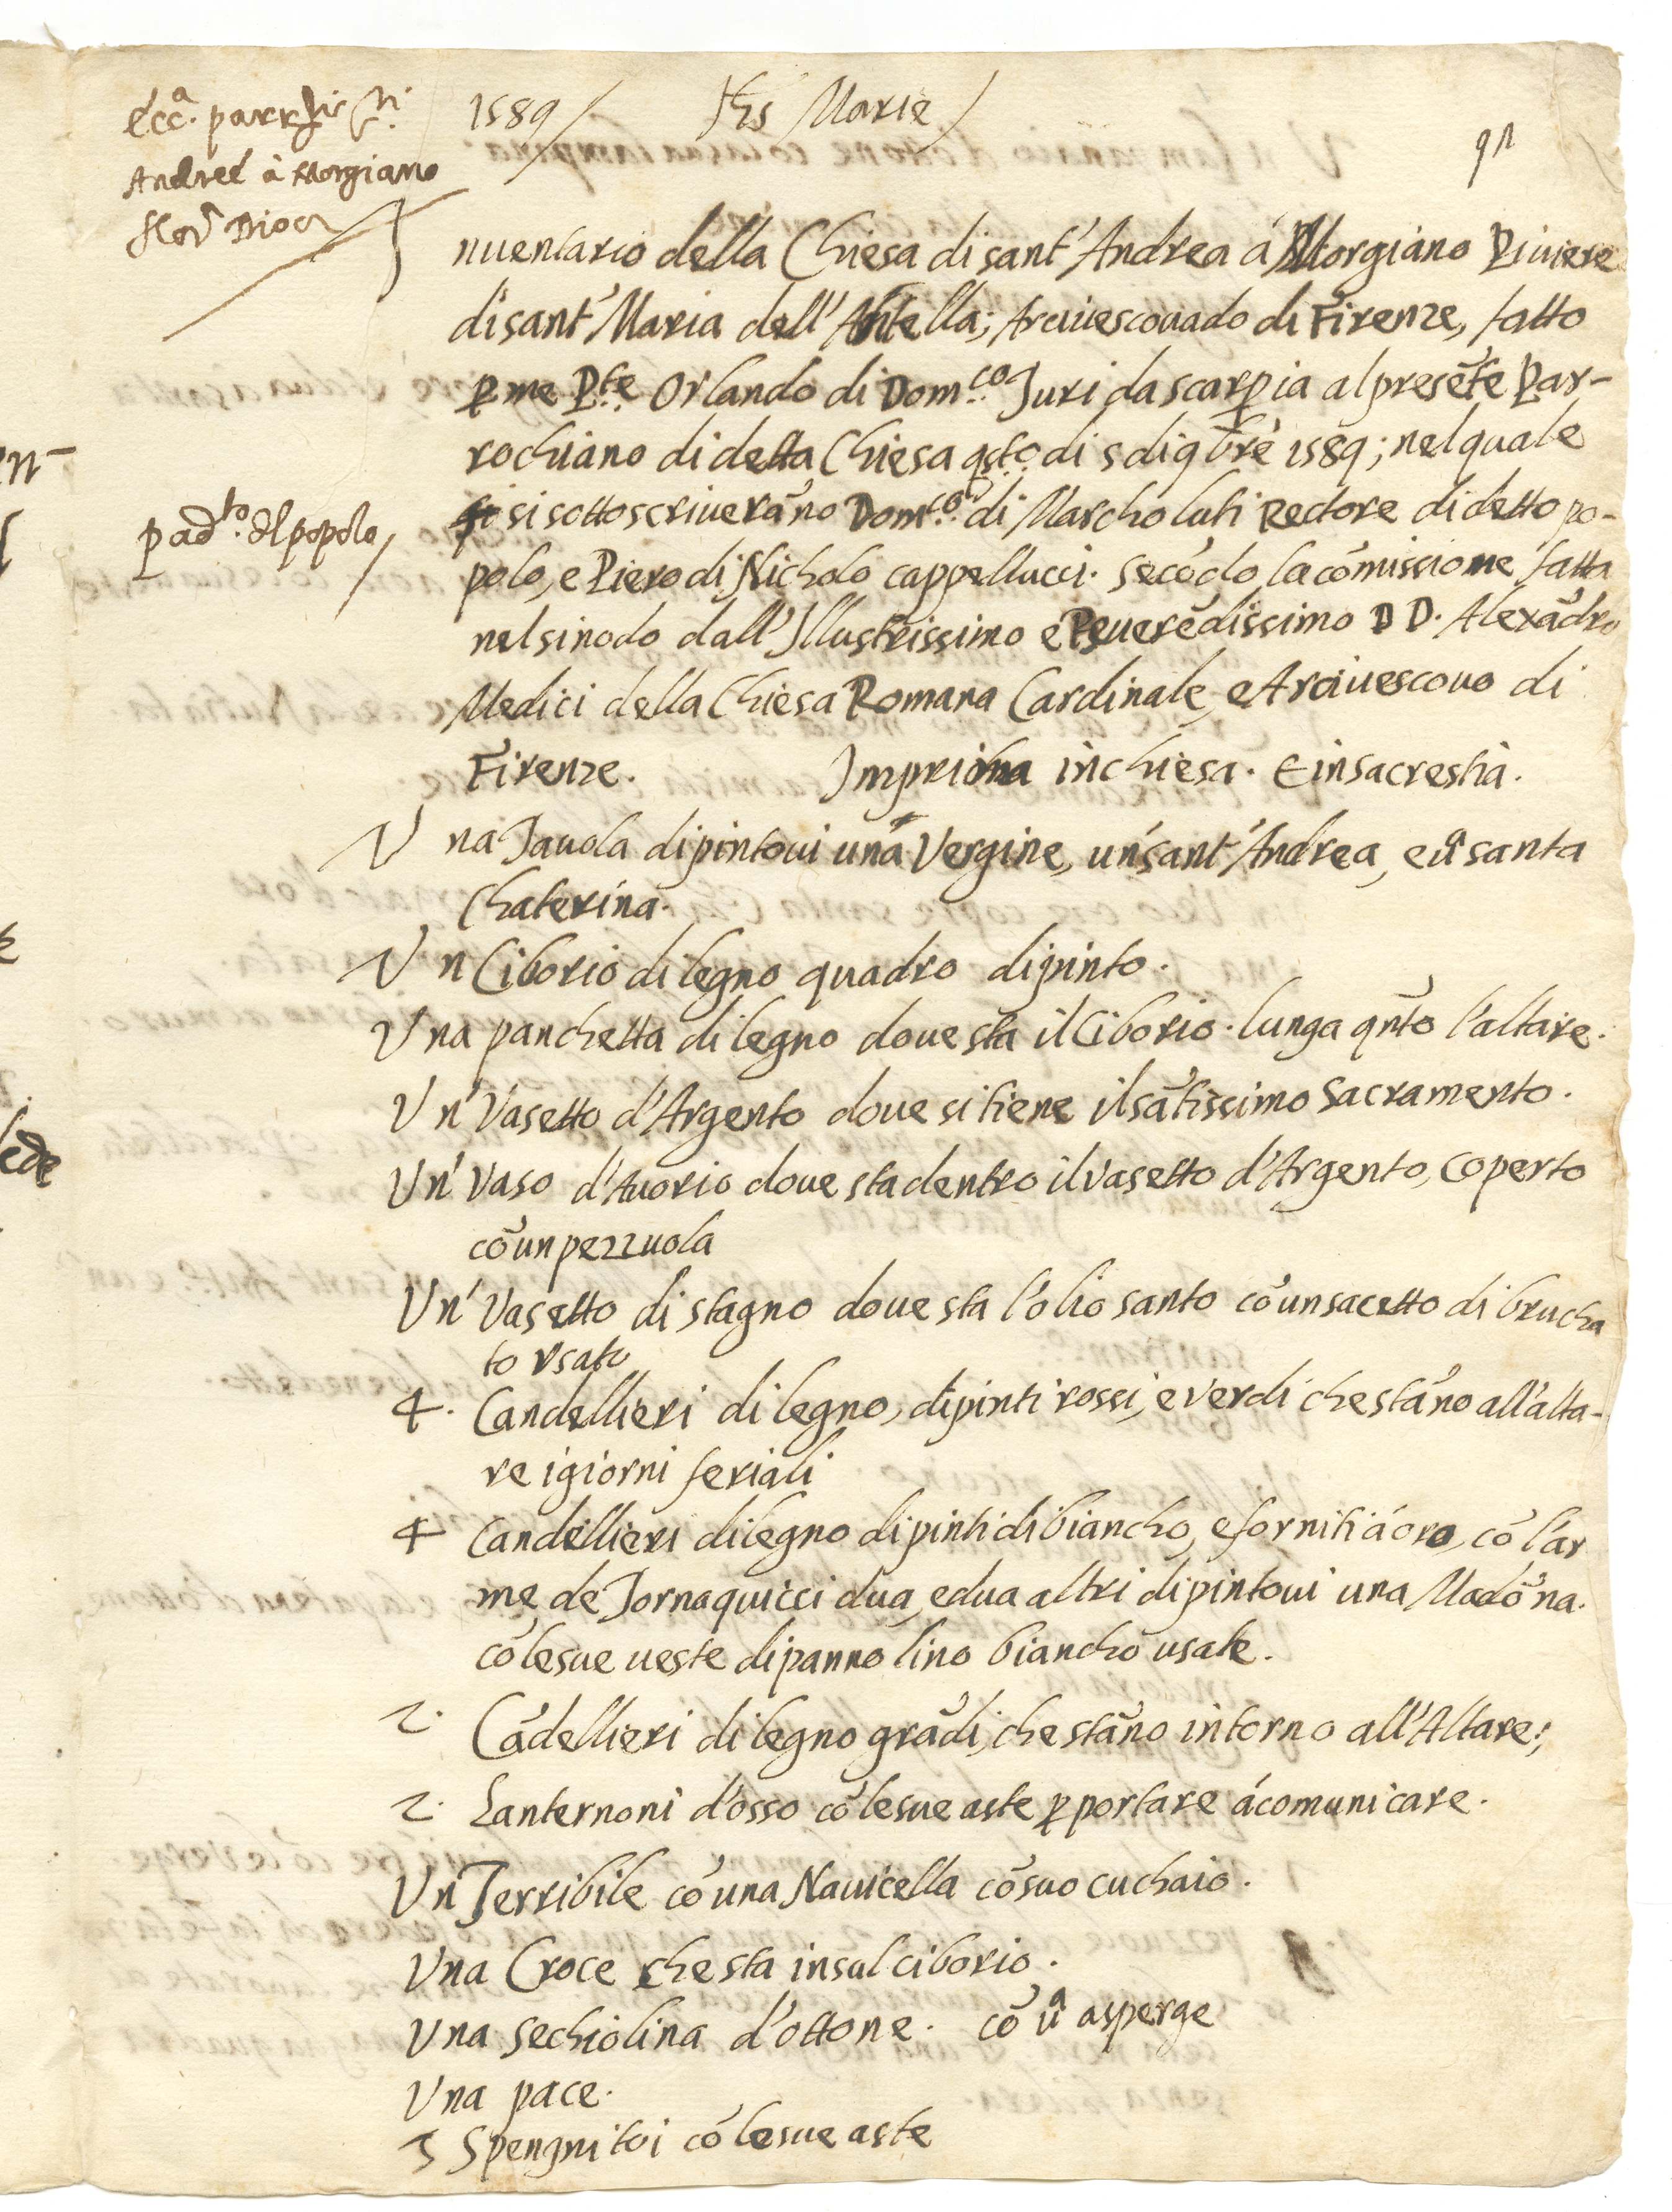 Ecc.ª parr.lis S.ti
Andreę à Morgiano
Flor. Dioc.
1589 / Yhs Marie /
91
Inuentario della Chiesa di sant'Andrea á Morgiano Piuiere
di sant'Maria dell'Antella; Arciuescouado di Firenze, fatto
p me P.te Orlando di Dom.co Turi da scarpia al presẽte Par-
rochiano di detta Chiesa q.sto di 5 di 9bre 1589; nel quale
si sottoscriuerãno Dom.co di Marcho luti Rectore di detto po-
p ad.to dl popolo
polo, e Piero di Nicholo cappellucci. secõdo la cõmissione fatta
nel sinodo dall'Illustrissimo e Reuerẽdissimo D D. Alexãdro
Medici della Chiesa Romana Cardinale, e Arciuescouo di
Firenze. Imprima in chiesa. E in sacrestia.
Una Tauola dipintoui una Vergine, un' sant'Andrea, e ũa santa
Chaterina.
Un Ciborio di legno quadro dipinto.
Una panchetta di legno doue sta il Ciborio. lunga q̃nto l'altare.
Un' Vasetto d'Argento doue si tiene il sãtissimo Sacramento.
Un' Vaso d'Auorio doue sta dentro il vasetto d'Argento, coperto
cõ un pezzuola
Un' Vasetto di stagno doue sta l'olio santo cõ un sacetto di brucha
to vsato
4. Candellieri di legno, dipinti rossi, e verdi che stãno all'alta-
re i giorni feriali
4 Candellieri di legno dipinti di biancho, e forniti á oro, cõ l'ar
me de Tornaquicci dua, e dua altri dipintoui una Madõna.
cõ le sue ueste di panno lino biancho usate.
2. Cãdellieri di legno grãdi, che stãno intorno all'Altare;
2. Lanternoni d'osso cõ le sue aste p portare á comunicare.
Un Terribile cõ una Nauicella cõ suo cuchaio.
Una Croce che sta in sul ciborio.
Una sechiolina d'ottone. cõ ũa asperge
Una pace.
3 Spengnitoi cõ le sue aste